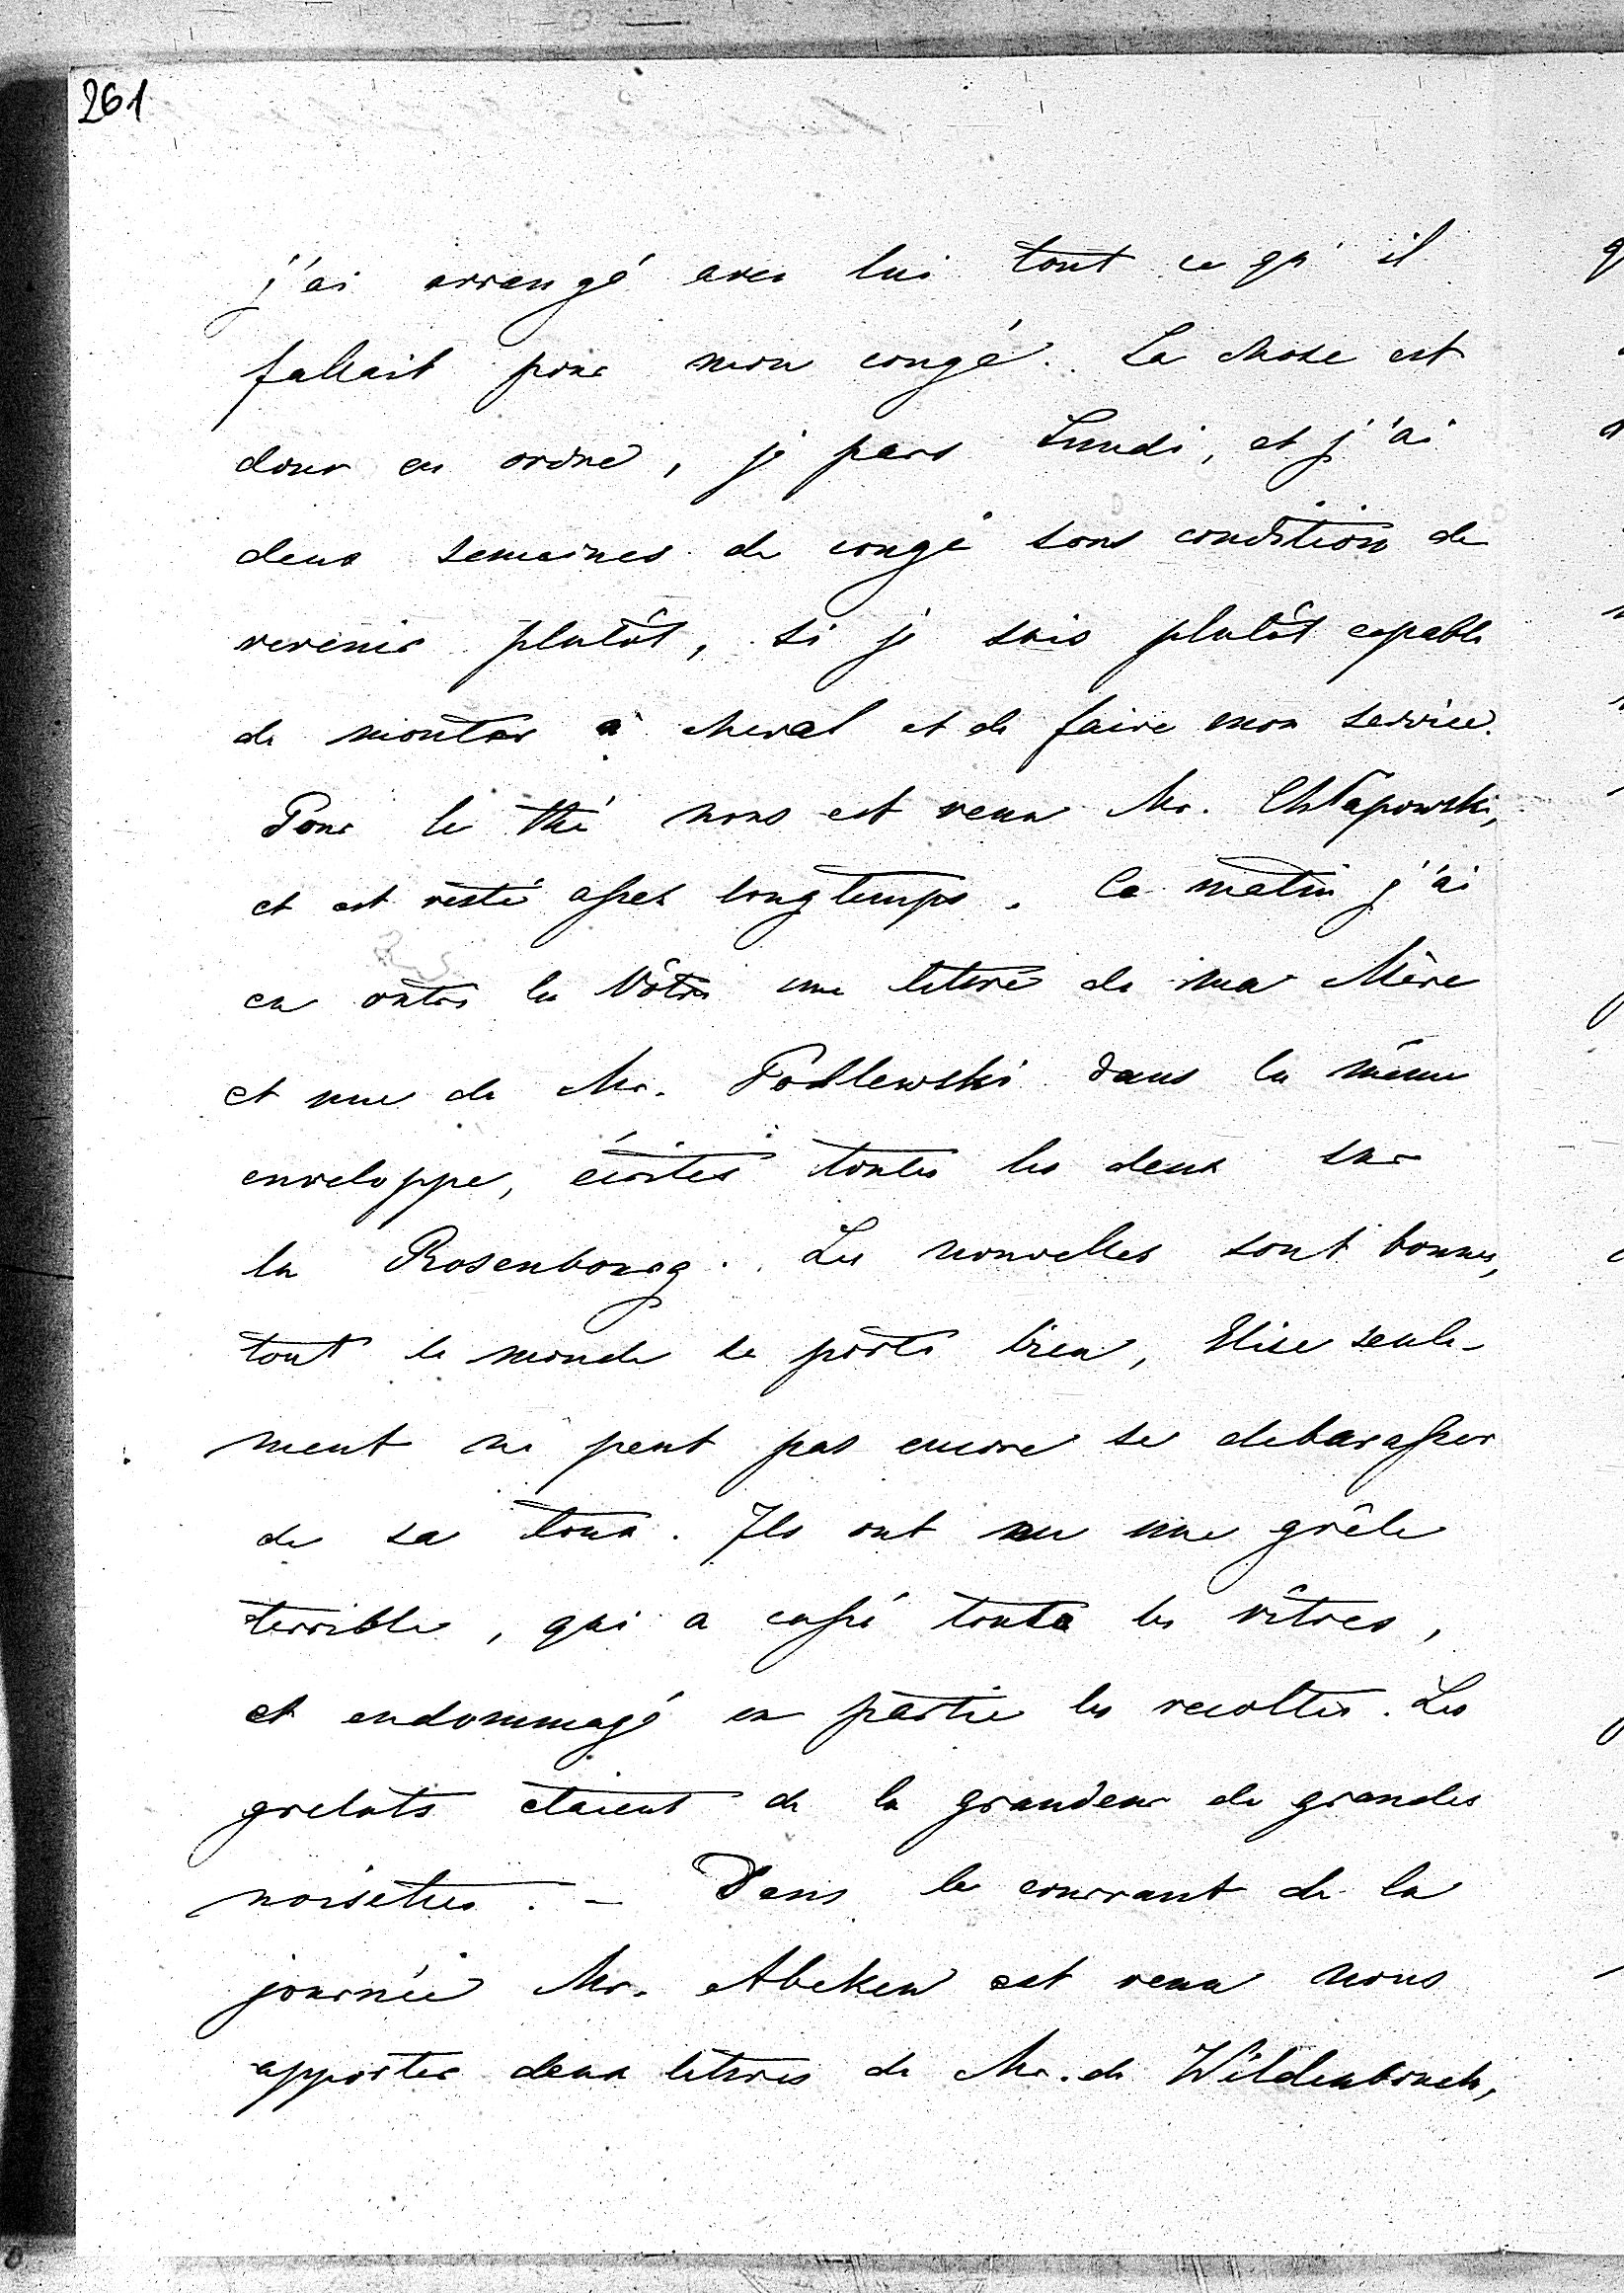 261
j'ai arrangé avec lui tout ce qu'il
fallait pour mon congé. La chose est
donc en ordre, je pars Lundi, et j'ai
deux semaines de congé sous condition de
revenir plutôt, si je suis plutôt capable
de monter à cheval et de faire mon service.
Pour le thé nous est venu Mr. Chłapowski,
et est resté assez longtemps. Ce matin j'ai
eu outre la Vôtre une lettre de ma Mère
et une de Mr. Podlewski dans la même
enveloppe, écrites toutes les deux sur
la Rosenbourg. Les nouvelles sont bonnes,
tout le monde se porte bien, Elise seule-
ment ne peut pas encore se debarasser
de sa toux. Ils ont eu une grêle
terrible, qui a cassé toute les vitres,
et endommagé en partie les recoltes. Les
grelots etaient de la grandeur de grandes
noisettes. - Dans le courrant de la
journée Mr. Abeken est venu nous
apporter deux lettres de Mr. de Wildenbruch,